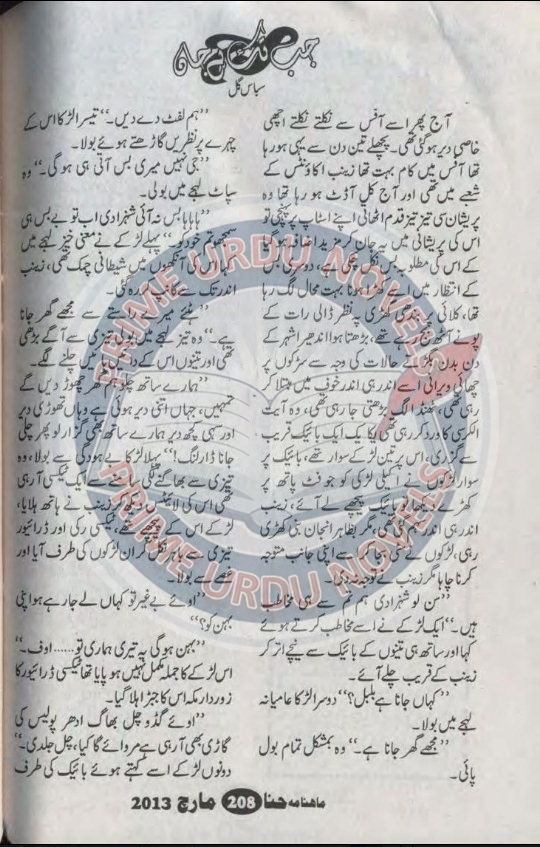 جب تک ہے جاں
سباس گل
آج پھر اسے آفس سے نکلتے نکلتے اچھی
خاصی دیر ہو گئی تھی۔ پچھلے تین دن سے یہی ہو رہا
تھا آفس میں کام بہت تھا زینب اکاؤنٹس کے
شعبے میں تھی اور آج کل آڈٹ ہو رہا تھا وہ
پریشان سی تیز تیز قدم اٹھاتی اپنے اسٹاپ پر پہنچی تو
اس کی پریشانی میں یہ جان کر مزید اضافہ ہو گیا
کے اس کی مطلوبہ بس نکل چکی ہے، دوسری بس
کے انتظار میں اسے کھڑا ہونا بہت محال لگ رہا
تھا، کلائی پر بندھی گھڑی پر نظر ڈالی رات کے
پونے آٹھ بج رہے تھے، بڑھتا ہوا اندھیرا شہر کے
دن بدن بگڑتے حالات کی وجہ سے سڑکوں پر
چھائی ویرانی اسے اندر ہی اندر خوف میں مبتلا کر
رہی تھی، ٹھنڈ الگ بڑھتی جا رہی تھی، وہ آیت
الکرسی کا ورد کر رہی تھی یکایک ایک بائیک قریب
سے گزری، اس پر تین لڑکے سوار تھے، بائیک پر
سوار لڑکوں نے اکیلی لڑکی کو جو فٹ پاتھ پر
کھڑے دیکھا تو بائیک پیچھے لے آئے، زینب
اندر ہی اندر سہم گئی تھی، مگر بظاہر انجان بنی کھڑی
رہی، لڑکوں نے سیٹی بجا کر اسے اپنی جانب متوجہ
کرنا چاہا مگر زینب نے توجہ نہ دی۔
"سن لو شہزادی ہم تم سے ہی مخاطب
ہیں۔" ایک لڑکے نے اسے مخاطب کرتے ہوئے
کہا اور ساتھ ہی تینوں کے بائیک سے نیچے اتر کر
زینب کے قریب چلے آئے۔
"کہاں جانا ہے بلبل؟" دوسرا لڑکا عامیانہ
لہجے میں بولا۔
"مجھے گھر جانا ہے۔" وہ بمشکل تمام بول
پائی۔
"ہم لفٹ دے دیں۔" تیسرا لڑکا اس کے
چہرے پر نظریں گاڑھتے ہوئے بولا۔
"جی نہیں میری بس آتی ہی ہو گی۔" وہ
سپاٹ لہجے میں بولی۔
"ہاہاہا بس نہ آئی شہزادی اب تو بے بس ہی
سمجھو تم خود کو۔" پہلے لڑکے نے معنی خیز لہجے میں
کہا اس کی آنکھوں میں شیطانی چمک تھی، زینب
اندر تک سے کانپ کر رہ گئی۔
"ہٹئے میرے راستے سے مجھے گھر جانا
ہے۔" وہ تیز لہجے میں بولی تیزی سے آگے بڑھی
تھی اور تینوں اس کے ساتھ میں چلنے لگے۔
"ہمارے ساتھ چلو گھر چھوڑ دیں گے
تمہیں، جہاں اتنی دیر ہوئی ہے وہاں تھوڑی دیر
اور سہی کچھ دیر ہمارے ساتھ بھی گزار لو پھر چلی
جانا ڈارلنگ!" پہلا لڑکا بے ہودگی سے بولا، وہ
تیزی سے بھاگنے لگی سامنے سے ایک ٹیکسی آ رہی
تھی اس کی لائیٹس دیکھ کر زینب نے ہاتھ ہلایا،
لڑکے اس کے پیچھے تھے، ٹیکسی رکی اور ڈرائیور
تیزی سے باہر نکل کر ان لڑکوں کی طرف آیا اور
غصے سے بولا۔
"اوئے بے غیر تو کہاں لے جا رہے ہو اپنی
بہن کو؟"
"بہن ہو گی یہ تیری ہماری تو ...... اوف۔"
اس لڑکے کا جملہ مکمل نہیں ہو پایا تھا ٹیکسی ڈرائیور کا
زوردار مکہ اس کا جبڑا ہلا گیا۔
"اوئے گڈو چل بھاگ ادھر پولیس کی
گاڑی بھی آ رہی ہے مروائے گا کیا، چل جلدی۔"
دونوں لڑکے اسے کہتے ہوئے بائیک کی طرف
ماہنامہ حنا 208 مارچ 2013
PRIME URDU NOVELS
PRIME URDU NOVELS